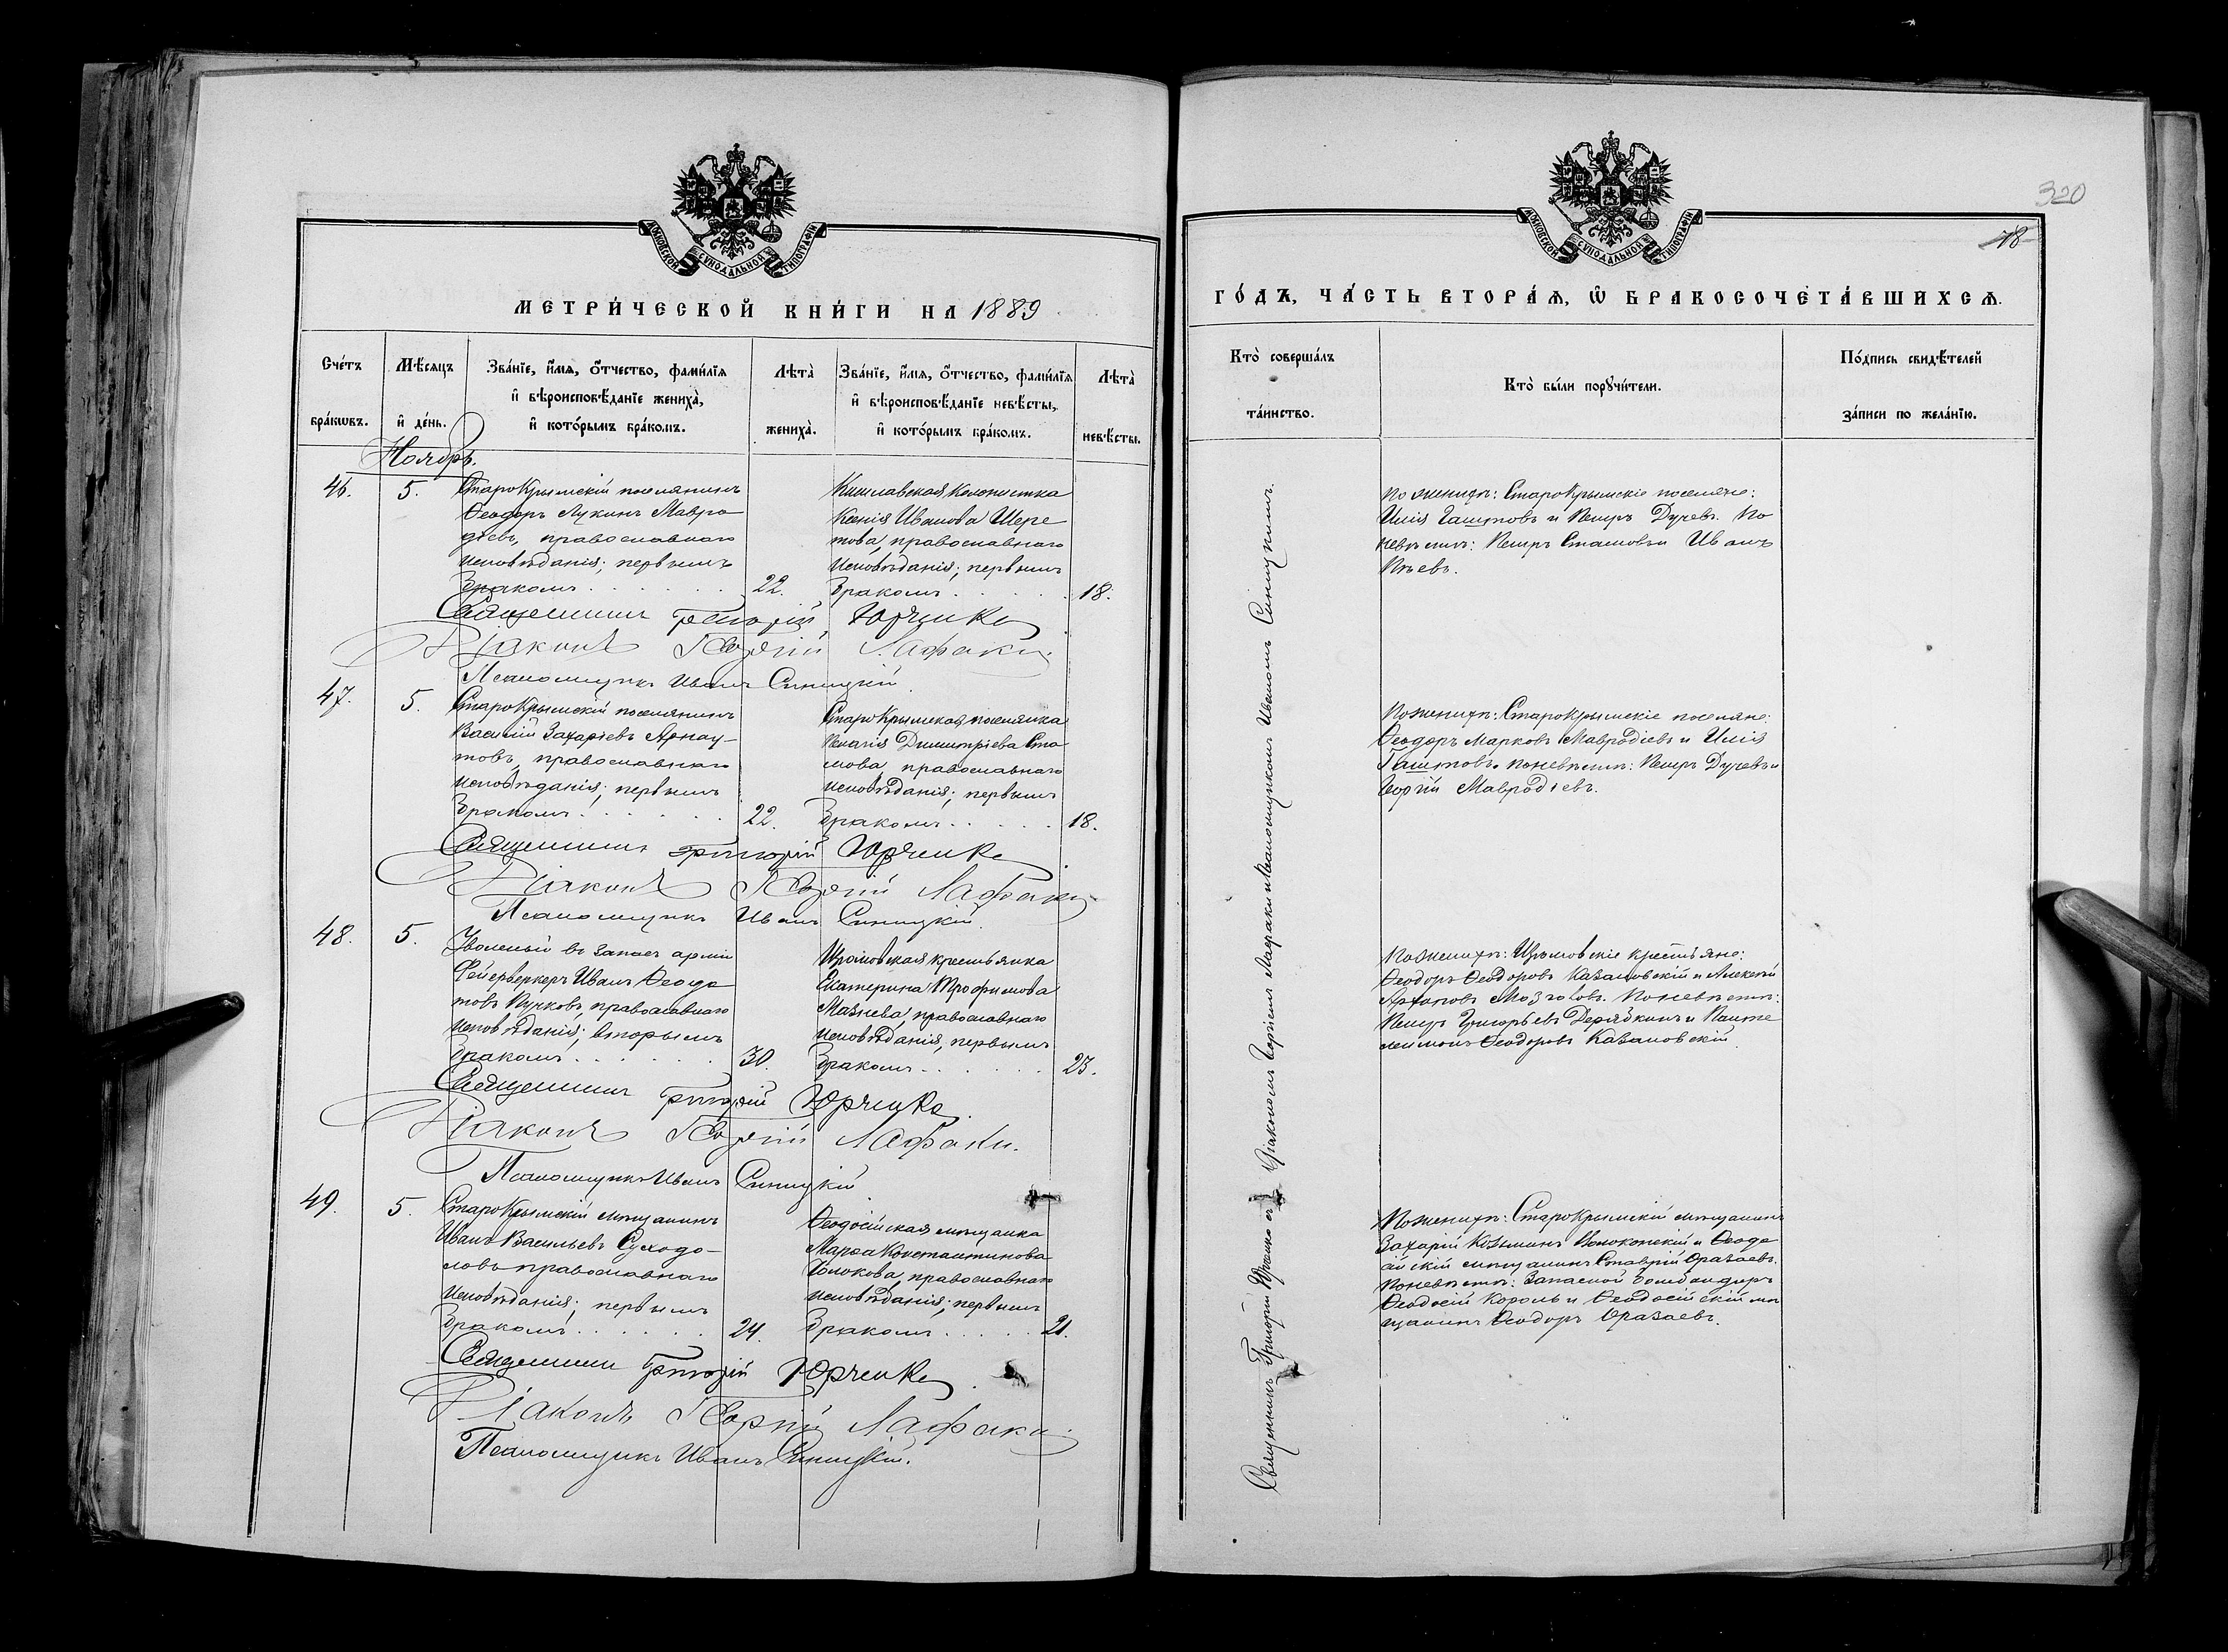 МОСКОВСКОЙ СУНОДАЛЬНОЙ ТИПОГРАФІИ
МЕТРИ́ЧЕСКОЙ КНИ́ГИ НА 1889
Сче́тъ бра́кѡвъ.
Мѣ́сяцъ и҆ де́нь.
Зва́нїе, и҆́мѧ, ѻ҆́тчество, фами́лїѧ
и҆ вѣроисповѣ́данїе жениха̀,
и҆ кото́рымъ бра́комъ.
Лѣта̀ жениха̀.
Зва́нїе, и҆́мѧ, ѻ҆́тчество, фами́лїѧ
и҆ вѣроисповѣ́данїе невѣ́сты,
и҆ кото́рымъ бра́комъ.
Лѣта̀ невѣ́сты.
Ноябрь.
46.
5.
СтароКрымскій поселянинъ
Ѳеодоръ Лукинъ Мавро
діевъ, православнаго
исповѣданія; первымъ
бракомъ . . . . . . 22.
Кишлавская Колонистка
Ксенія Иванова Шере
това, православнаго
исповѣданія; первымъ
бракомъ . . . . . 18.
Священникъ Григорій Юрченко
Діаконъ Георгій Лафаки.
Псаломщикъ Иванъ Синицкій.
47.
5.
СтароКрымскій поселянинъ
Василій Захаріевъ Арнау-
товъ, православнаго
исповѣданія; первымъ
бракомъ . . . . . . 22.
СтароКрымская поселянка
Пелагія Димитріева Ста
мова православнаго
исповѣданія; первымъ
бракомъ . . . . . 18.
Священникъ Григорій Юрченко
Діаконъ Георгій Лафаки
Псаломщикъ Иванъ Синицкій.
48.
5.
Уволеный въ запасъ арміи
Фейерверкеръ Иванъ Ѳеодо
товъ Пучковъ, православнаго
исповѣданія; вторымъ
бракомъ . . . . . . 30.
крестьянка
Екатерина Трофимова
Мазнева, православнаго
исповѣданія, первымъ
бракомъ . . . . . . 23.
Священникъ Григорій Юрченко.
Діаконъ Георгій Лафаки.
Псаломщикъ Иванъ Синицкій
49.
5.
СтароКрымскій мѣщанинъ
Иванъ Васильевъ Суходо-
ловъ православнаго
исповѣданія; первымъ
бракомъ . . . . . . 24.
Ѳеодосійская мѣщанка
Марѳа Константинова
Голокова, православнаго
исповѣданія; первымъ
бракомъ . . . . . 21.
Священникъ Григорій Юрченко.
Діаконъ Георгій Лафаки.
Псаломщикъ Иванъ Синицкій.
320
78
МОСКОВСКОЙ СУНОДАЛЬНОЙ ТИПОГРАФІИ
ГО́ДЪ, ЧА́СТЬ ВТОРА́Ѧ, Ѡ҆ БРАКОСОЧЕТА́ВШИХСѦ.
Кто̀ соверша́лъ та́инство.
Кто̀ бы́ли порꙋчи́тели.
По́дпись свидѣ́телей за́писи по жела́нїю.
Священникъ Григорій Юрченко съ Діакономъ Георгіемъ Лафаки и Псаломщикомъ Иваномъ Синицкимъ.
По женихѣ: СтароКрымскіе поселяне:
Илія Гаштовъ и Петръ Дучевъ. По
невѣстѣ: Петръ Стамовъ и Иванъ
По женихѣ: СтароКрымскіе поселяне:
Ѳеодоръ Марковъ Мавродіевъ и Илія
Гаштовъ. По невѣстѣ: Петръ Дучевъ и
Георгій Мавродіевъ.
По женихѣ: крестьяне:
Ѳеодоръ Ѳеодоровъ Казановскій и Алексѣй
Мозговъ. По невѣстѣ:
Петръ Григорьевъ Дерябкинъ и Панте
леимонъ Ѳеодоровъ Казановскій.
По женихѣ: СтароКрымскій мѣщанинъ
Захарій Козьминъ Волоконскій и Ѳеодо
сійскій мѣщанинъ Ставрій Фразаевъ.
По невѣстѣ: Запасной бомбандиръ
Ѳеодосій Король и Ѳеодосійскій мѣ
щанинъ Ѳеодоръ Фразаевъ.